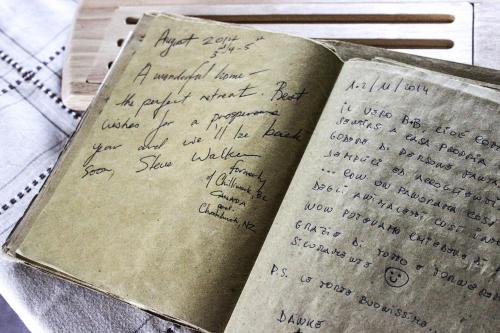 August 2014
3rd/4-5th
A wonderful home -
the perfect retreat. Best
wishes for a prosperous
year and we'll be back
soon, Steve Walker
formerly
of Chilliwack, BC
CANADA
and
Christchurch, NZ
1-2/11/2014
IL VERO B&B, CIOÈ
SENTIRSI A CASA PROPRIA
GODERE DI PERSONE
SEMPLICI ED ACCOGLIENTI
... CON UN PANORAMA COSÌ
DEGLI ANIMALETTI COSÌ
NON POTEVAMO CHIEDERE DI
GRAZIE DI TUTTO E TORNEREMO
SICURAMENTE
P.S. LE TORTE BUONISSIME.
DANKE